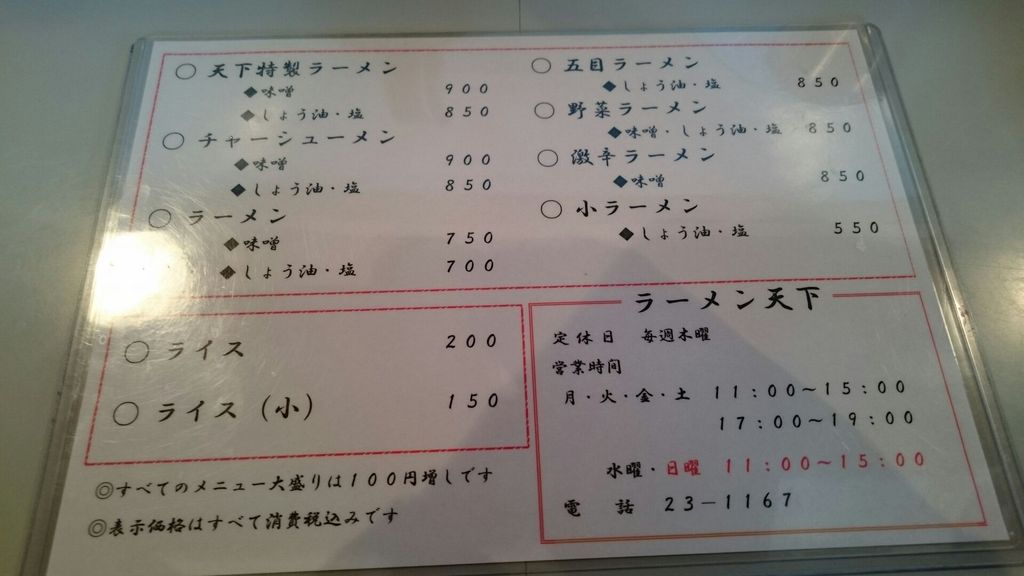 ○ 天下特製ラーメン
◆味噌 900
◆しょう油・塩 850
○ チャーシューメン
◆味噌 900
◆しょう油・塩 850
○ ラーメン
◆味噌 750
◆しょう油・塩 700
○ 五目ラーメン
◆しょう油・塩 850
○ 野菜ラーメン
◆味噌・しょう油・塩 850
○ 激辛ラーメン
◆味噌 850
○ 小ラーメン
◆しょう油・塩 550
○ ライス 200
○ ライス（小） 150
◎すべてのメニュー大盛りは100円増しです
◎表示価格はすべて消費税込みです
ラーメン天下
定休日 毎週木曜
営業時間
月・火・金・土 11：00～15：00
17：00～19：00
水曜・日曜 11：00～15：00
電話 23－1167